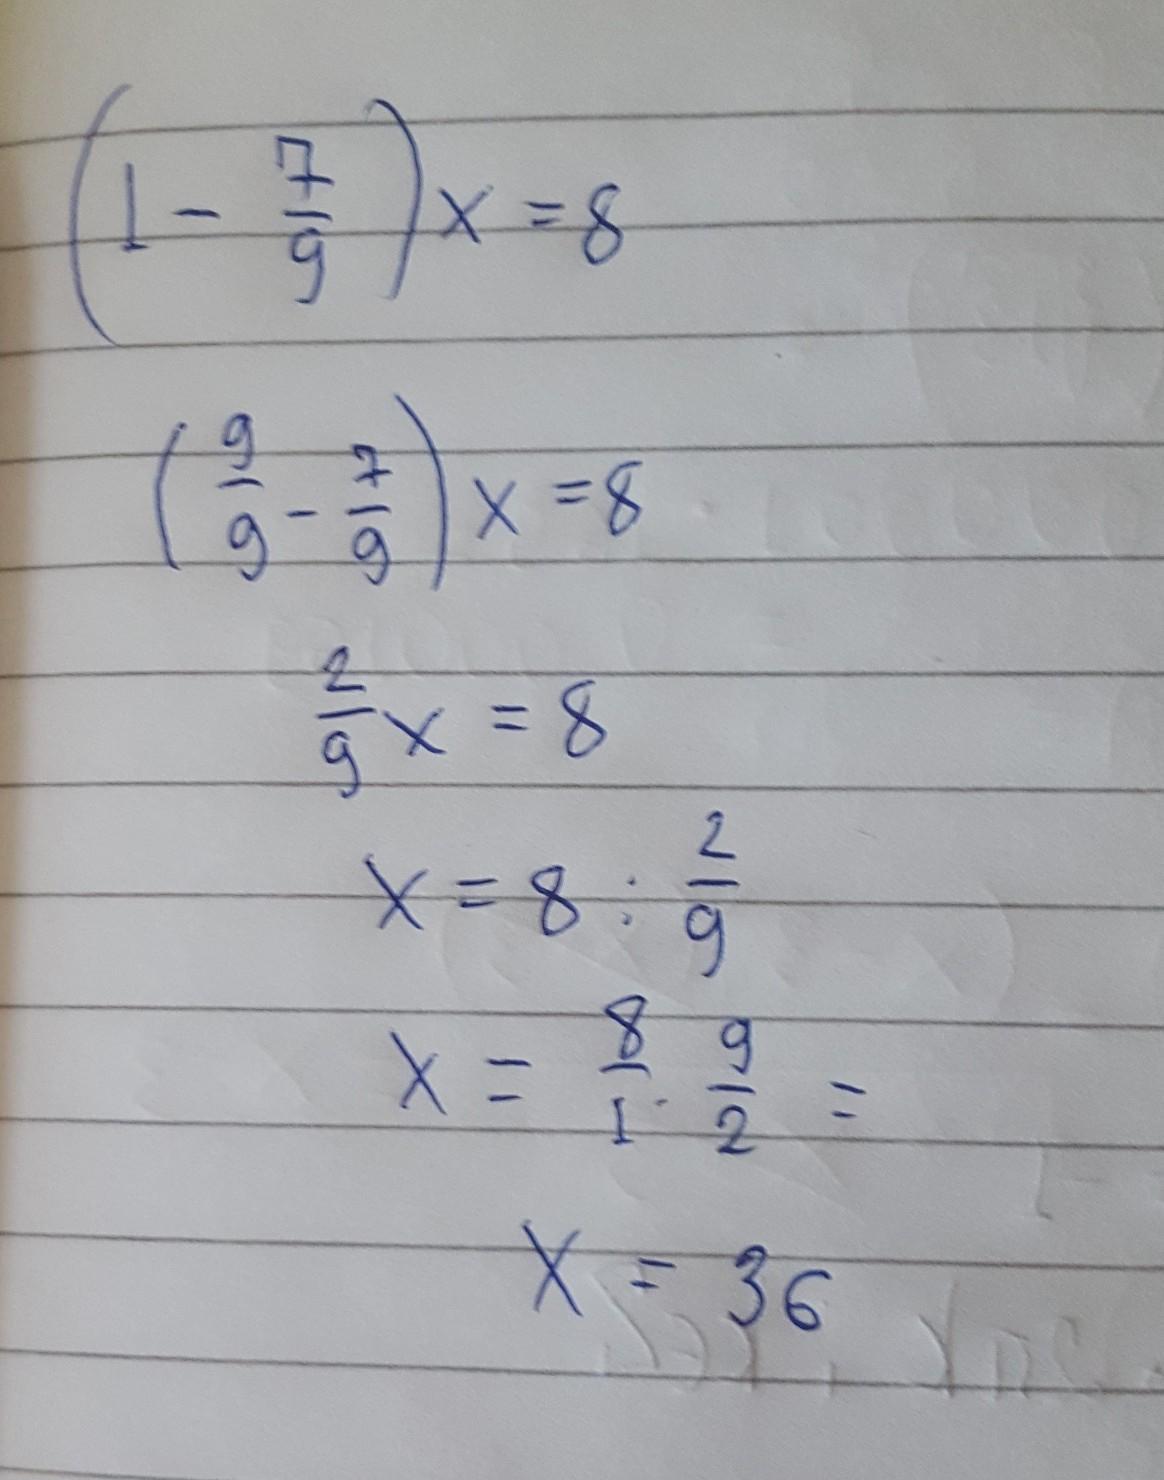 (1 - 7/9) x = 8
(9/9 - 7/9) x = 8
2/9 x = 8
x = 8 : 2/9
x = 8/1 · 9/2 =
x = 36